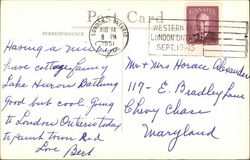 Post Card
CORRESPONDENCE
LONDON ONTARIO
AUG 14
6 PM
1951
WESTERN
LONDON
SEPT. 10-15
Having a nice
have cottage facing
Lake Huron Bathing
good but cool. Going
to London Ontario today
to paint town Red
Love Bert
Mr & Mrs Horace Alexander
117 - E. Bradley Lane
Chevy Chase
Maryland